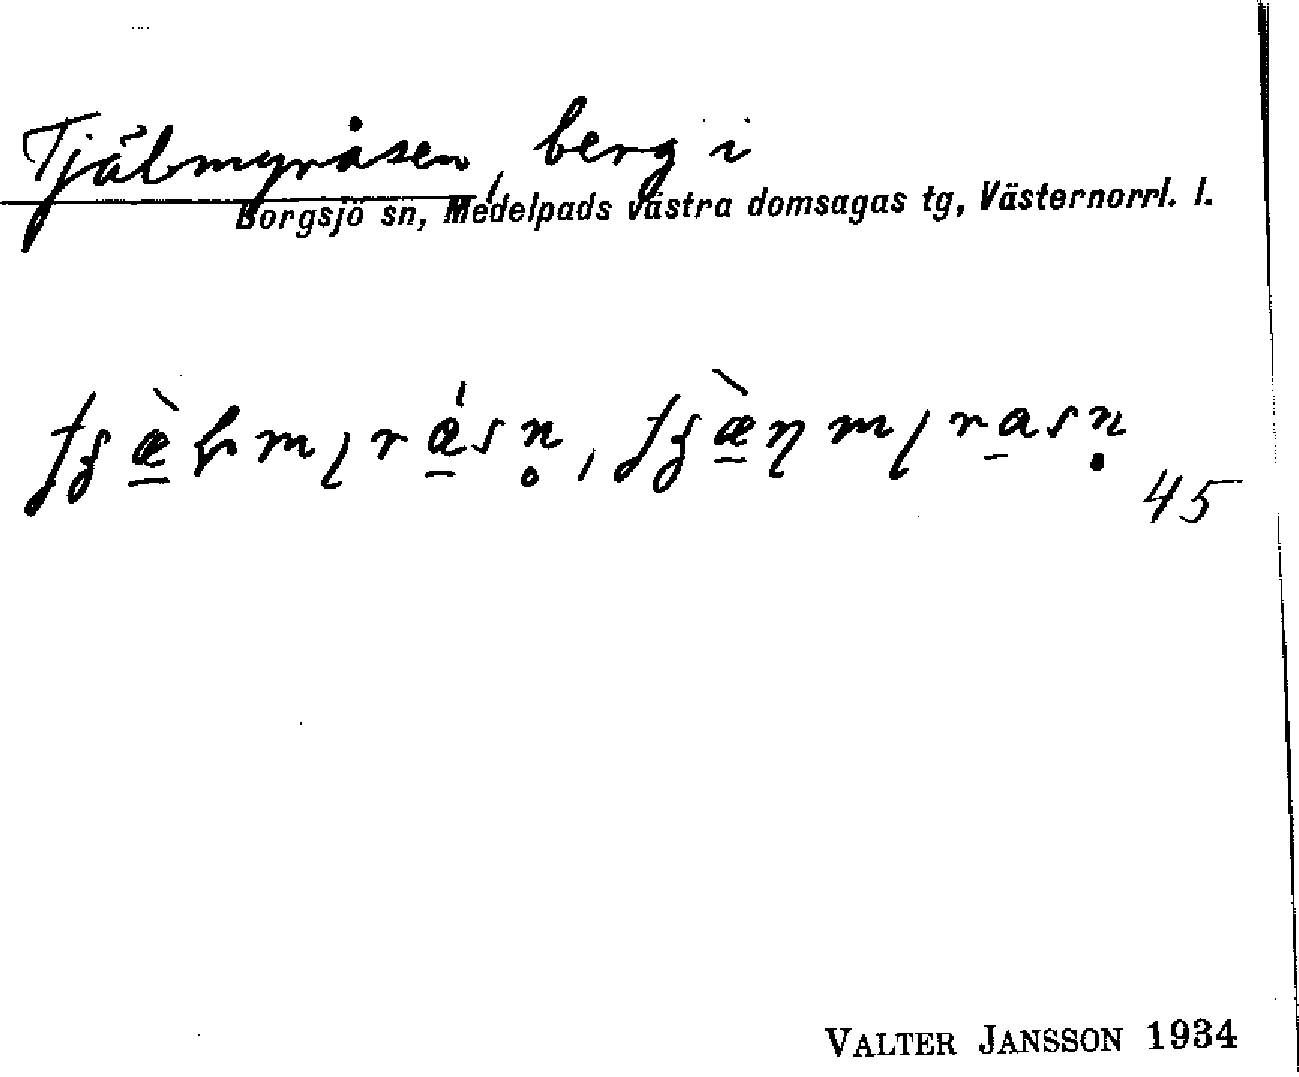 Tjälmyråsen, berg i
Borgsjö sn, Medelpads västra domsagas tg, Västernorrl. l.
45
VALTER JANSSON 1934